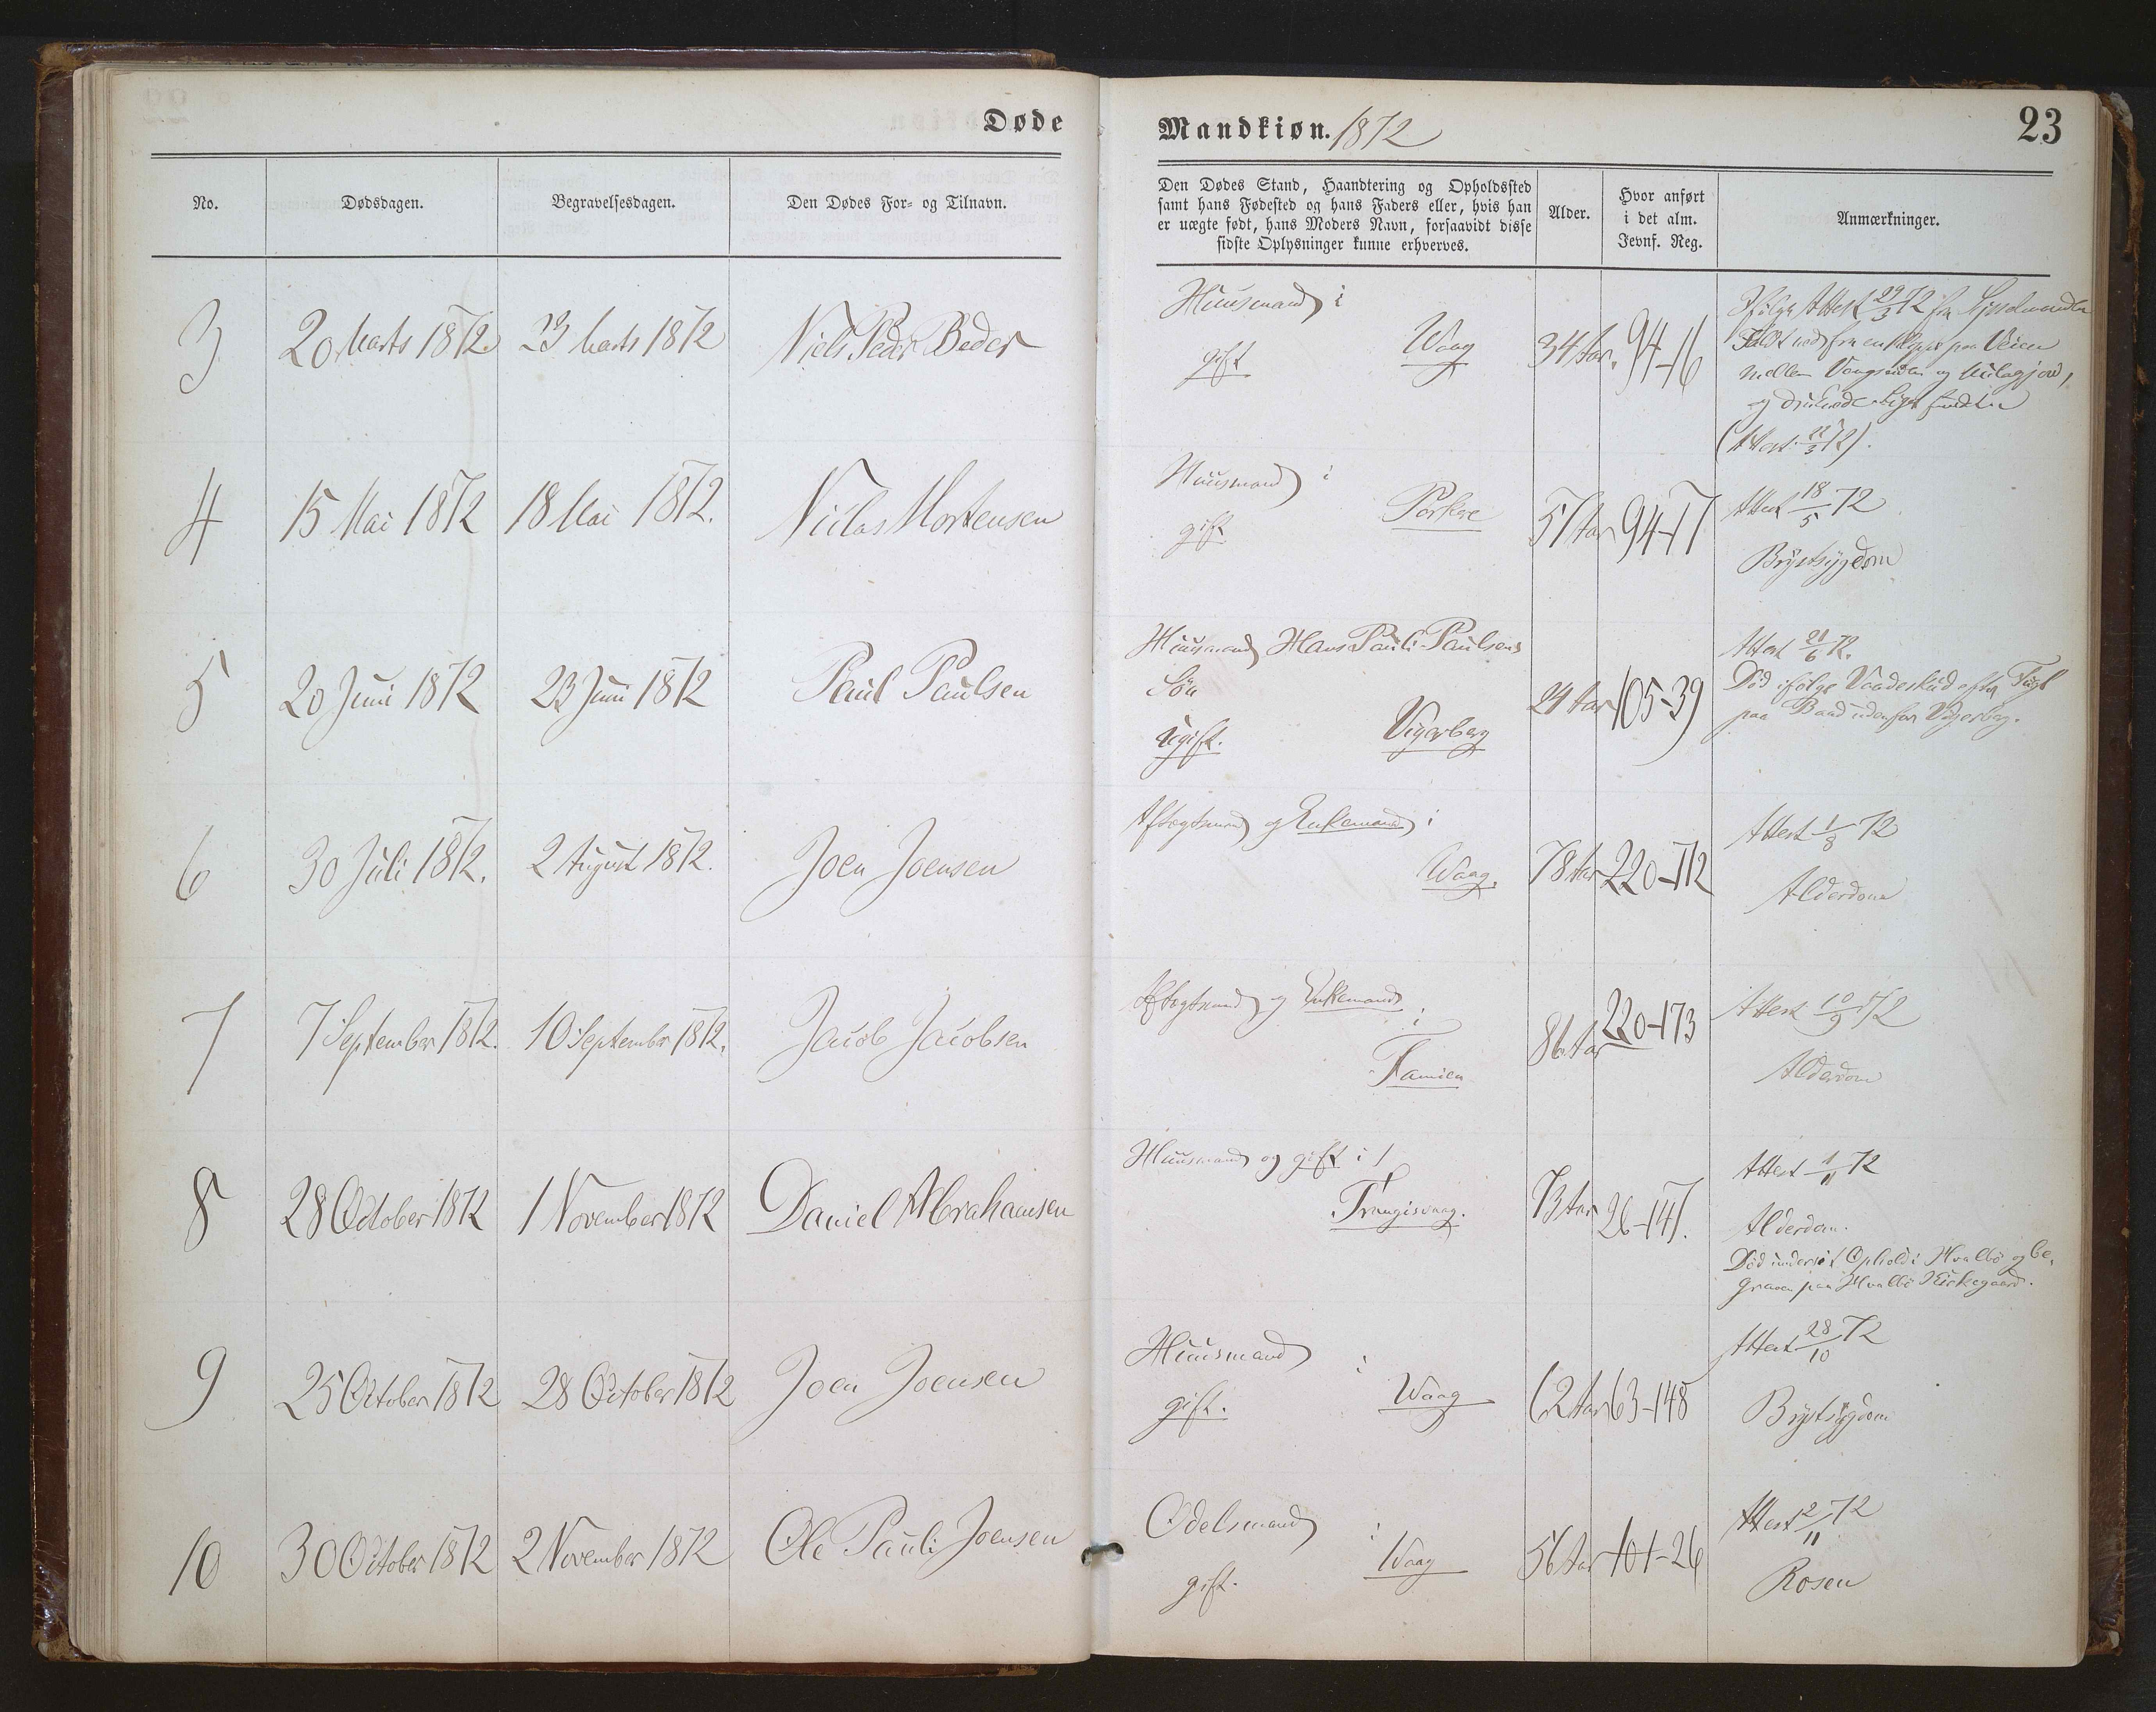 Døde
Mandkiøn. 1872
23
No.
Dødsdagen.
Begravelsesdagen.
Den Dødes For- og Tilnavn.
Den Dødes Stand, Haandtering og Opholdssted
samt hans Fødested og hans Faders eller, hvis han
er uægte født, hans Moders Navn, forsaavidt disse
sidste Oplysninger kunne erhverves.
Alder.
Hvor anført
i det alm.
Jevnf. Reg.
Anmærkninger.
3
20 Marts 1872.
23 Marts 1872
Niels Peder Beder
Huusmand i
gift
Waag
34 Aar.
94-16
Ifølge Attest 29/3 72 fra Sysselmanden
Faldt ned fra en Klippe paa Veien
mellem
og
(Attest 22/3 72).
4
15 Mai 1872
18 Mai 1872.
Niclas Mortensen
Huusmand i
Porkere
gift
57 Aar
94-17
Attest 18/5 72
Brystsygdom
5
20 Juni 1872
23 Juni 1872
Paul Paulsen
Huusmand Hans Pauli Paulsens
Søn
ugift.
Vigerberg
24 Aar
105-39
Attest 21/6 72.
Død ifølge Vaadeskud efter Fugl
paa Baad udenfor Vigerberg.
6
30 Juli 1872.
2 August 1872.
Joen Joensen
Aftægtsmand og Enkemand i
Waag.
78 Aar
220-172
Attest 1/8 72
Alderdom
7
7 September 1872.
10 September 1872.
Jacob Jacobsen
Aftægtsmand og Enkemand
i
Famien
86 Aar
220-173
Attest 10/9 72
Alderdom
8
28 October 1872
1 November 1872
Daniel Abrahamsen
Huusmand og gift i
Trangisvaag.
73 Aar
26-147.
Attest 1/11 72
Alderdom.
Død under sit Ophold i Hvalbø og be-
graven paa Hvalbø Kirkegaard.
9
25 October 1872
28 October 1872
Joen Joensen
Huusmand i
gift.
Waag
62 Aar
63-148
Attest 28/10 72
Brystsygdom
10
30 October 1872
2 November 1872
Ole Pauli Joensen
Odelsmand i
Waag
gift.
56 Aar
101-26
Attest 2/11 72
Rosen